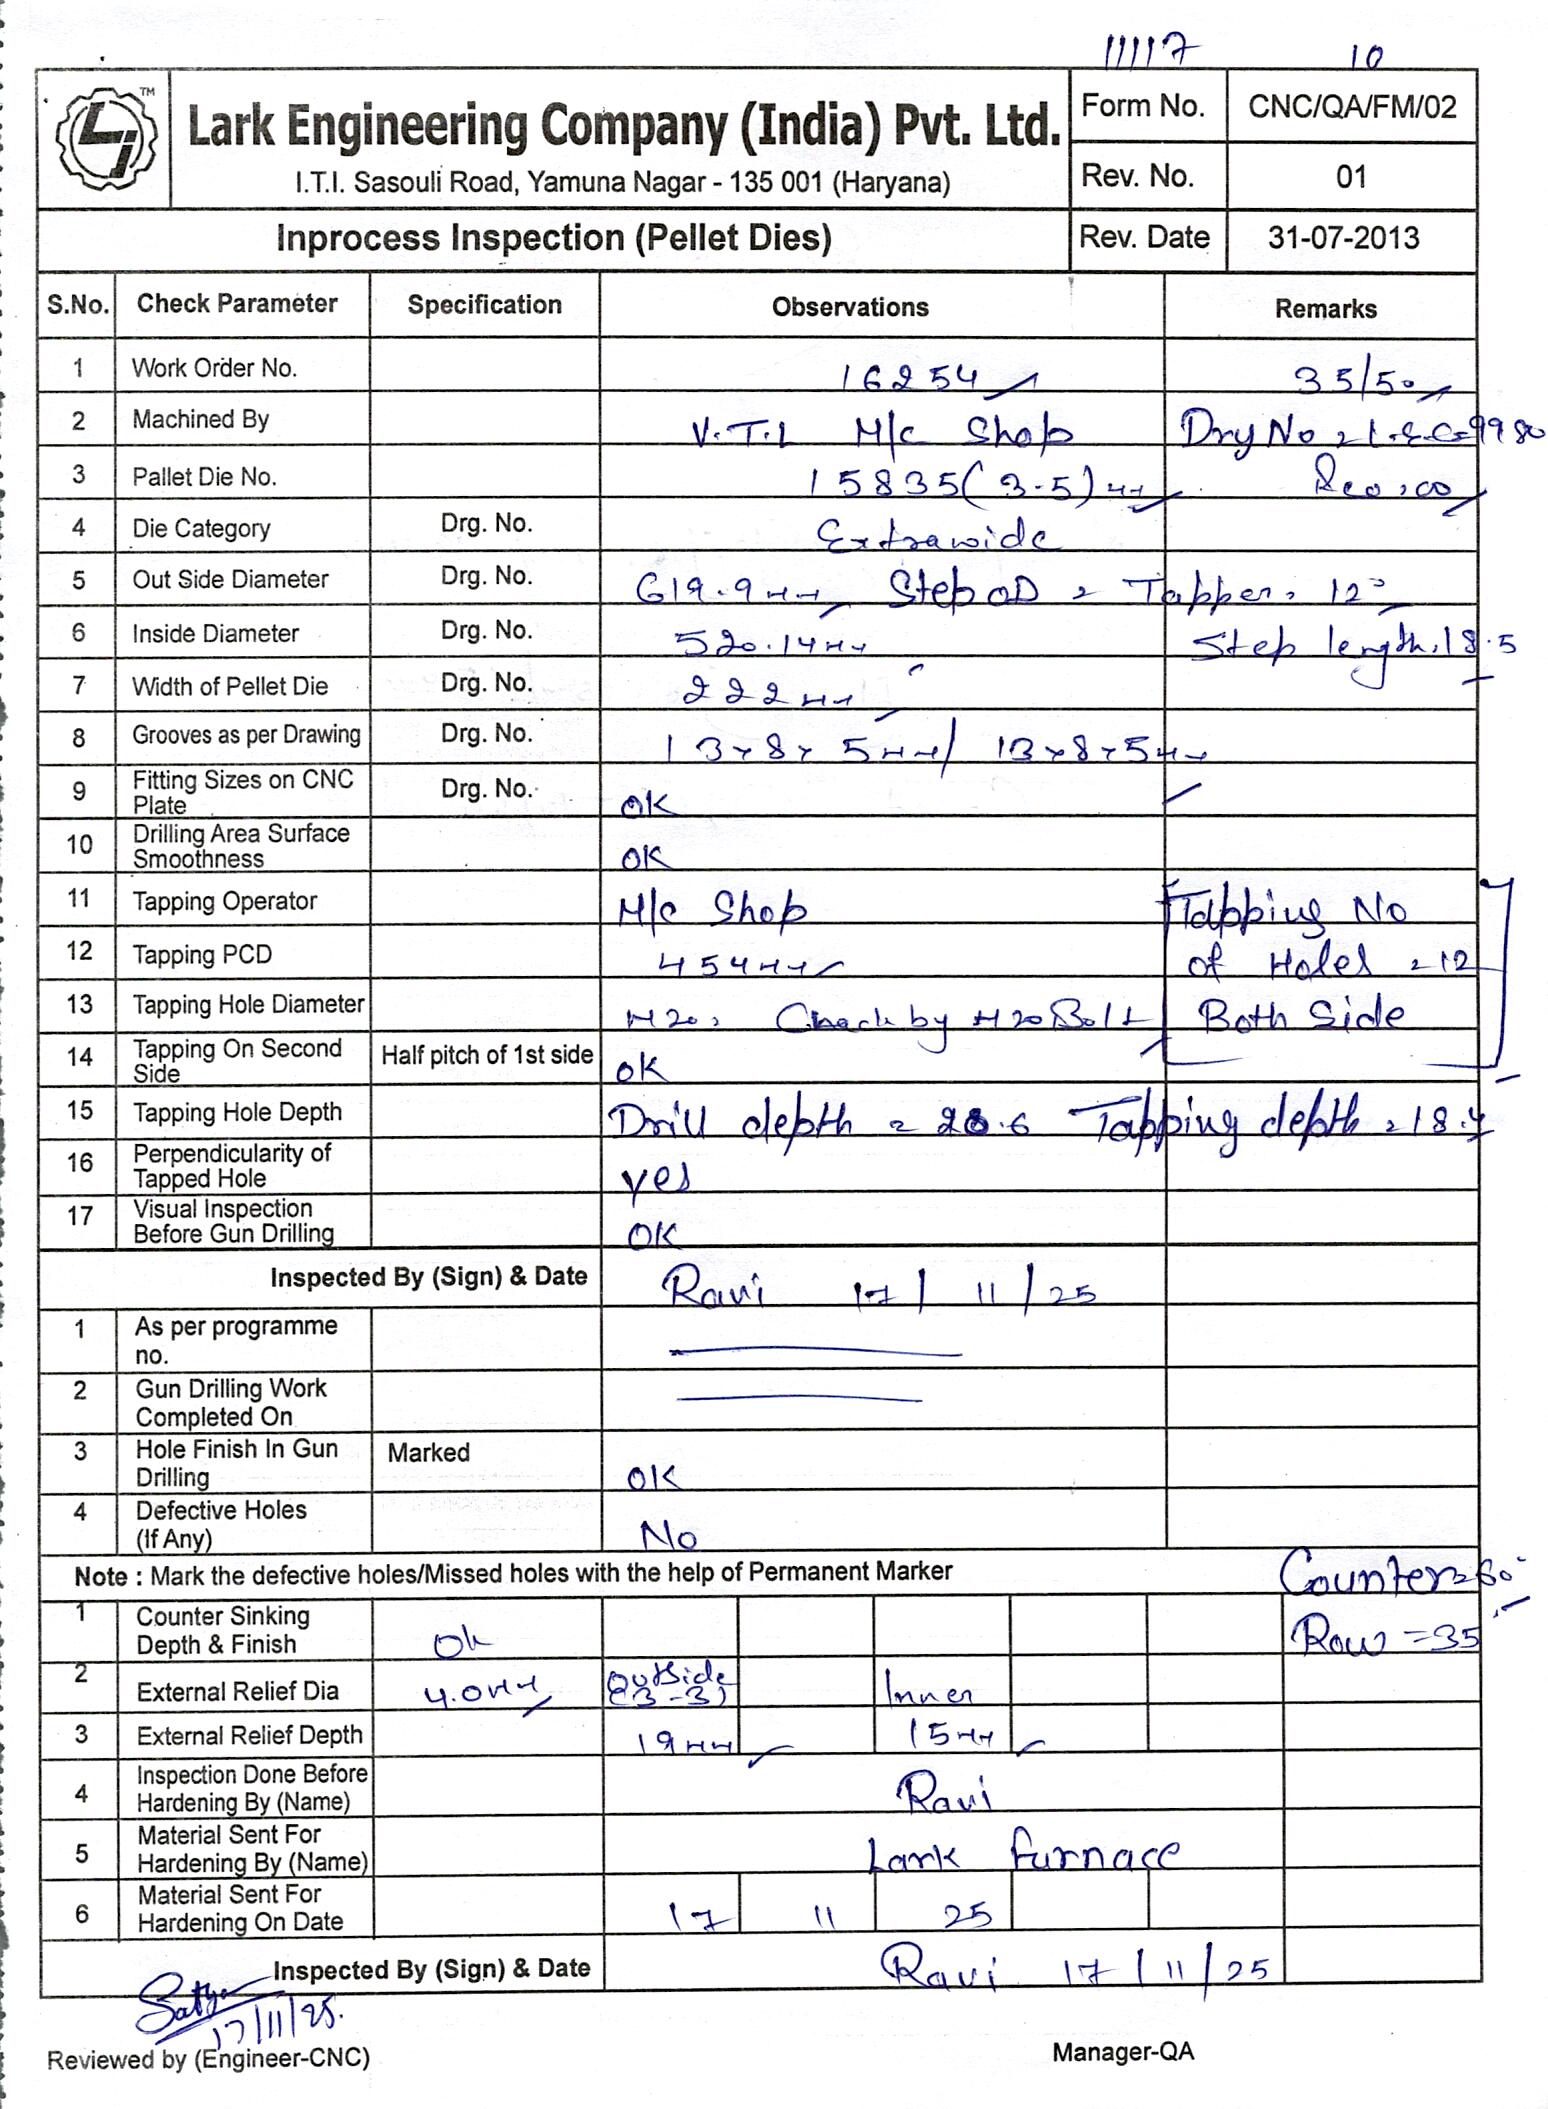 11117 10
TM
Lark Engineering Company (India) Pvt. Ltd.
I.T.I. Sasouli Road, Yamuna Nagar - 135 001 (Haryana)
Form No. CNC/QA/FM/02
Rev. No. 01
Inprocess Inspection (Pellet Dies) Rev. Date 31-07-2013
S.No. Check Parameter Specification Observations Remarks
1 Work Order No. 16254 35/50
2 Machined By V.T.L M/c Shop Drg No = L.E.C=9980
3 Pallet Die No. 15835(3.5)mm Rev=00
4 Die Category Drg. No. Extrawide
5 Out Side Diameter Drg. No. 619.9mm Step OD = Tapper = 12°
6 Inside Diameter Drg. No. 520.14mm Step length=18.5
7 Width of Pellet Die Drg. No. 222mm
8 Grooves as per Drawing Drg. No. 13x8x5mm/ 13x8x5mm
9 Fitting Sizes on CNC Plate Drg. No. OK
10 Drilling Area Surface Smoothness OK
11 Tapping Operator M/c Shop Tapping No
12 Tapping PCD 454mm of Holes = 12
13 Tapping Hole Diameter M20, Check by M20 Bolt Both Side
14 Tapping On Second Side Half pitch of 1st side OK
15 Tapping Hole Depth Drill depth = 20.6 Tapping depth = 18.4
16 Perpendicularity of Tapped Hole yes
17 Visual Inspection Before Gun Drilling OK
Inspected By (Sign) & Date Ravi 17/11/25
1 As per programme no.
2 Gun Drilling Work Completed On
3 Hole Finish In Gun Drilling Marked OK
4 Defective Holes (If Any) No
Note : Mark the defective holes/Missed holes with the help of Permanent Marker Counter=60°
1 Counter Sinking Depth & Finish Ok Row = 35
2 External Relief Dia 4.0mm Outside (3-3) Inner
3 External Relief Depth 19mm 15mm
4 Inspection Done Before Hardening By (Name) Ravi
5 Material Sent For Hardening By (Name) Lark furnace
6 Material Sent For Hardening On Date 17 11 25
Inspected By (Sign) & Date Ravi 17/11/25
17/11/25.
Reviewed by (Engineer-CNC) Manager-QA